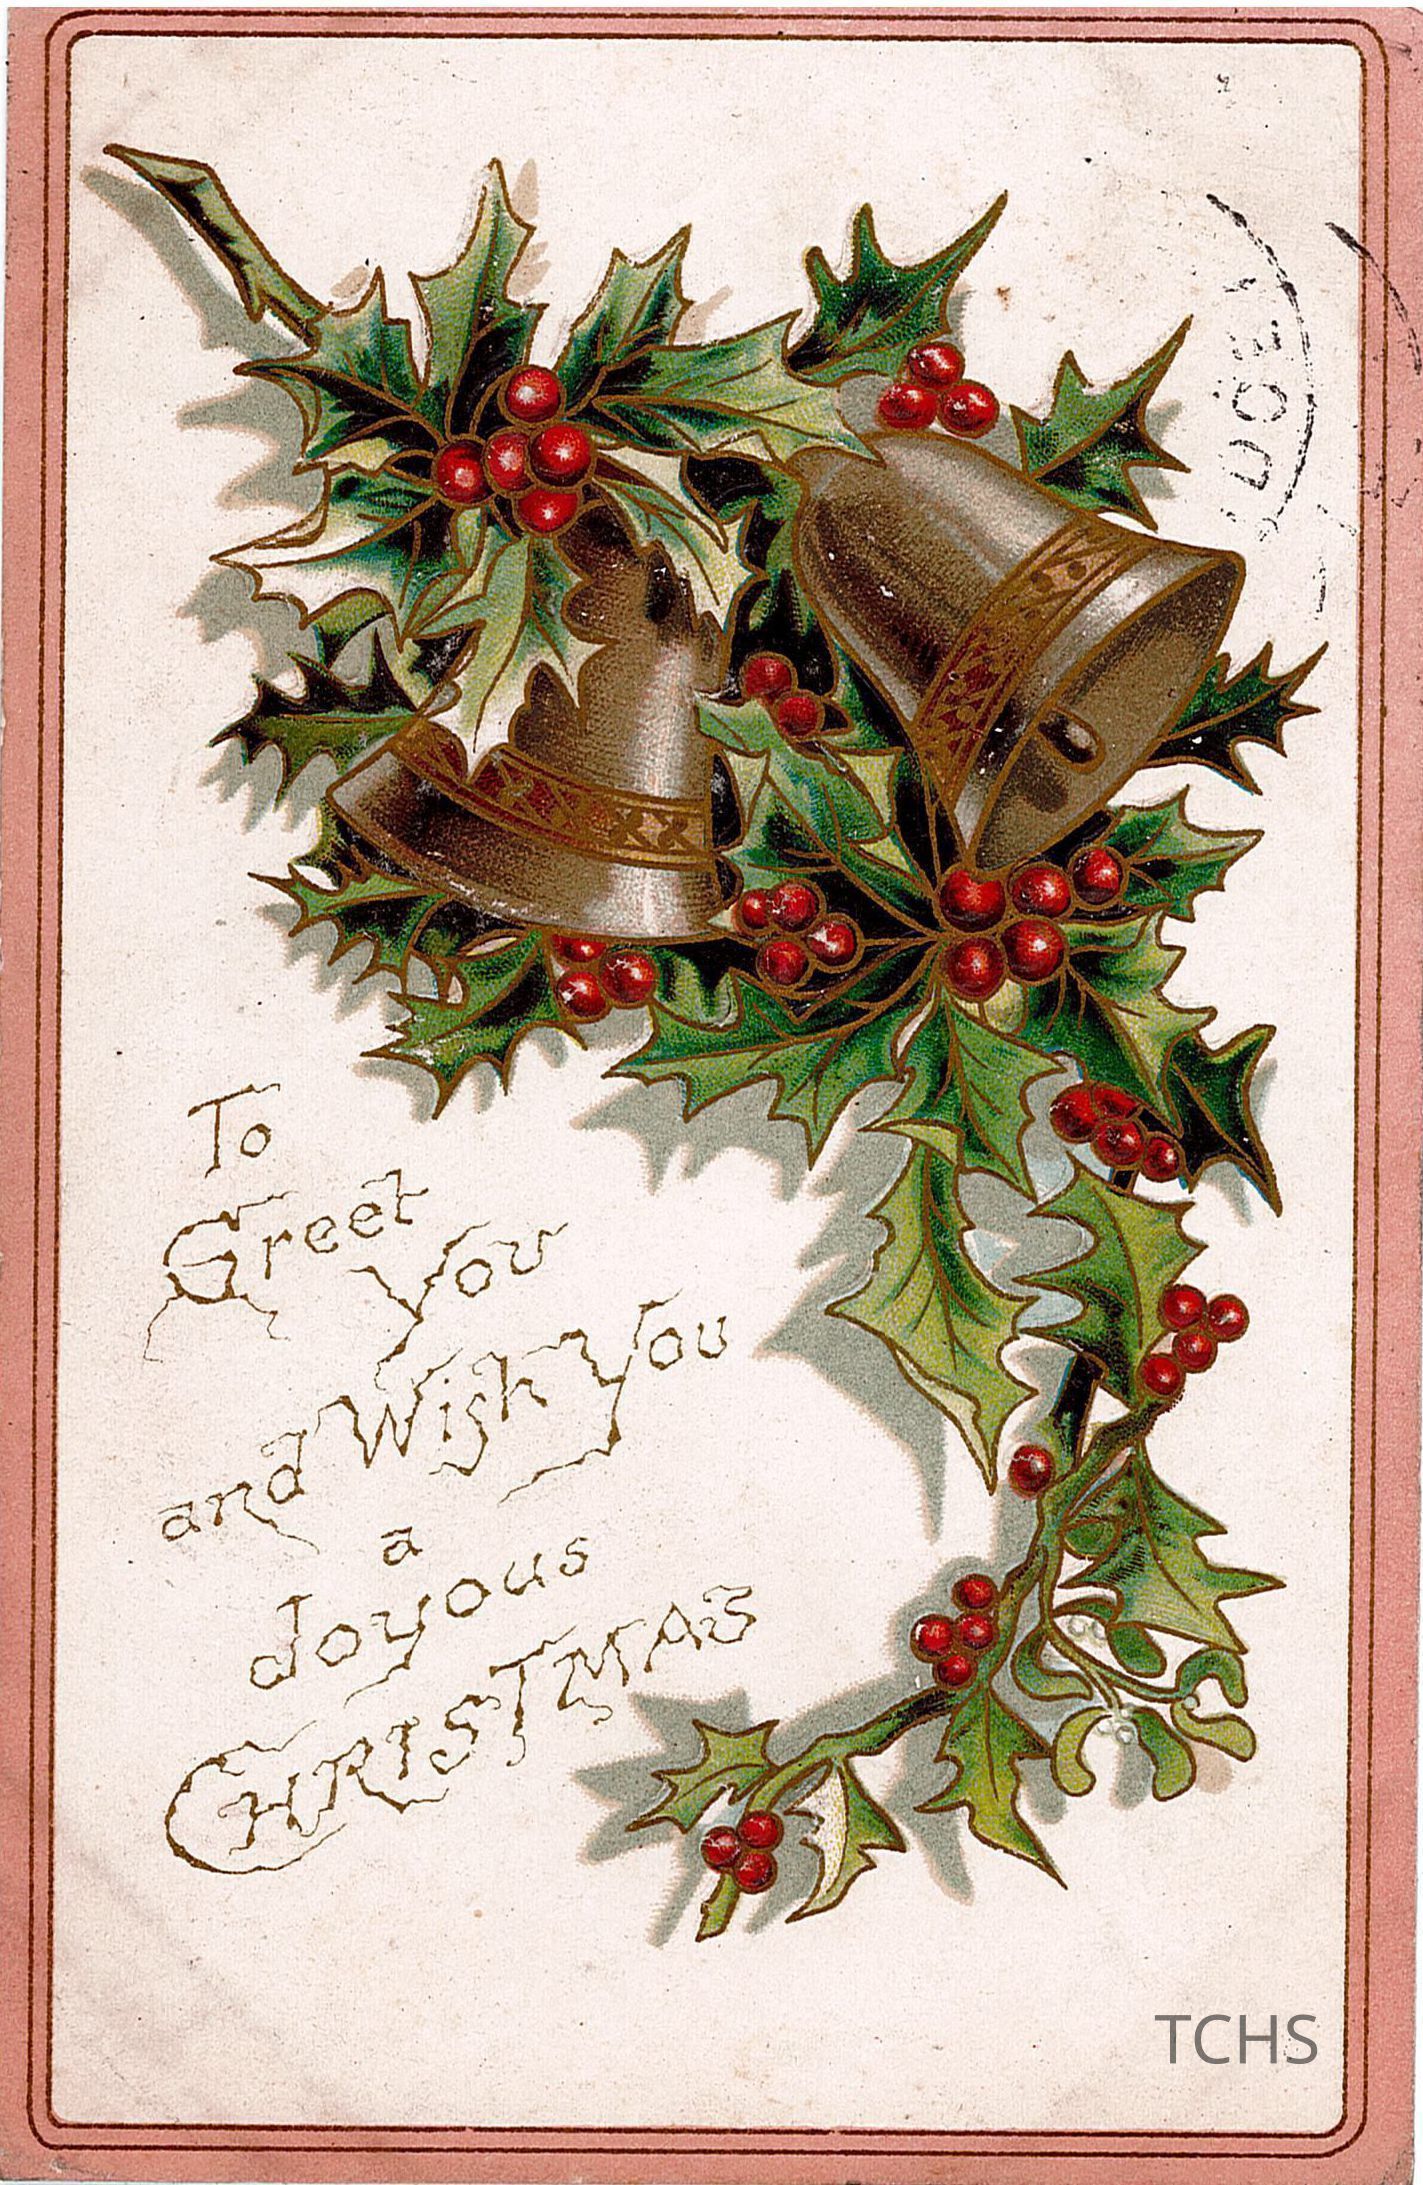 To
Greet
You
and Wish You
a
Joyous
CHRISTMAS
TCHS